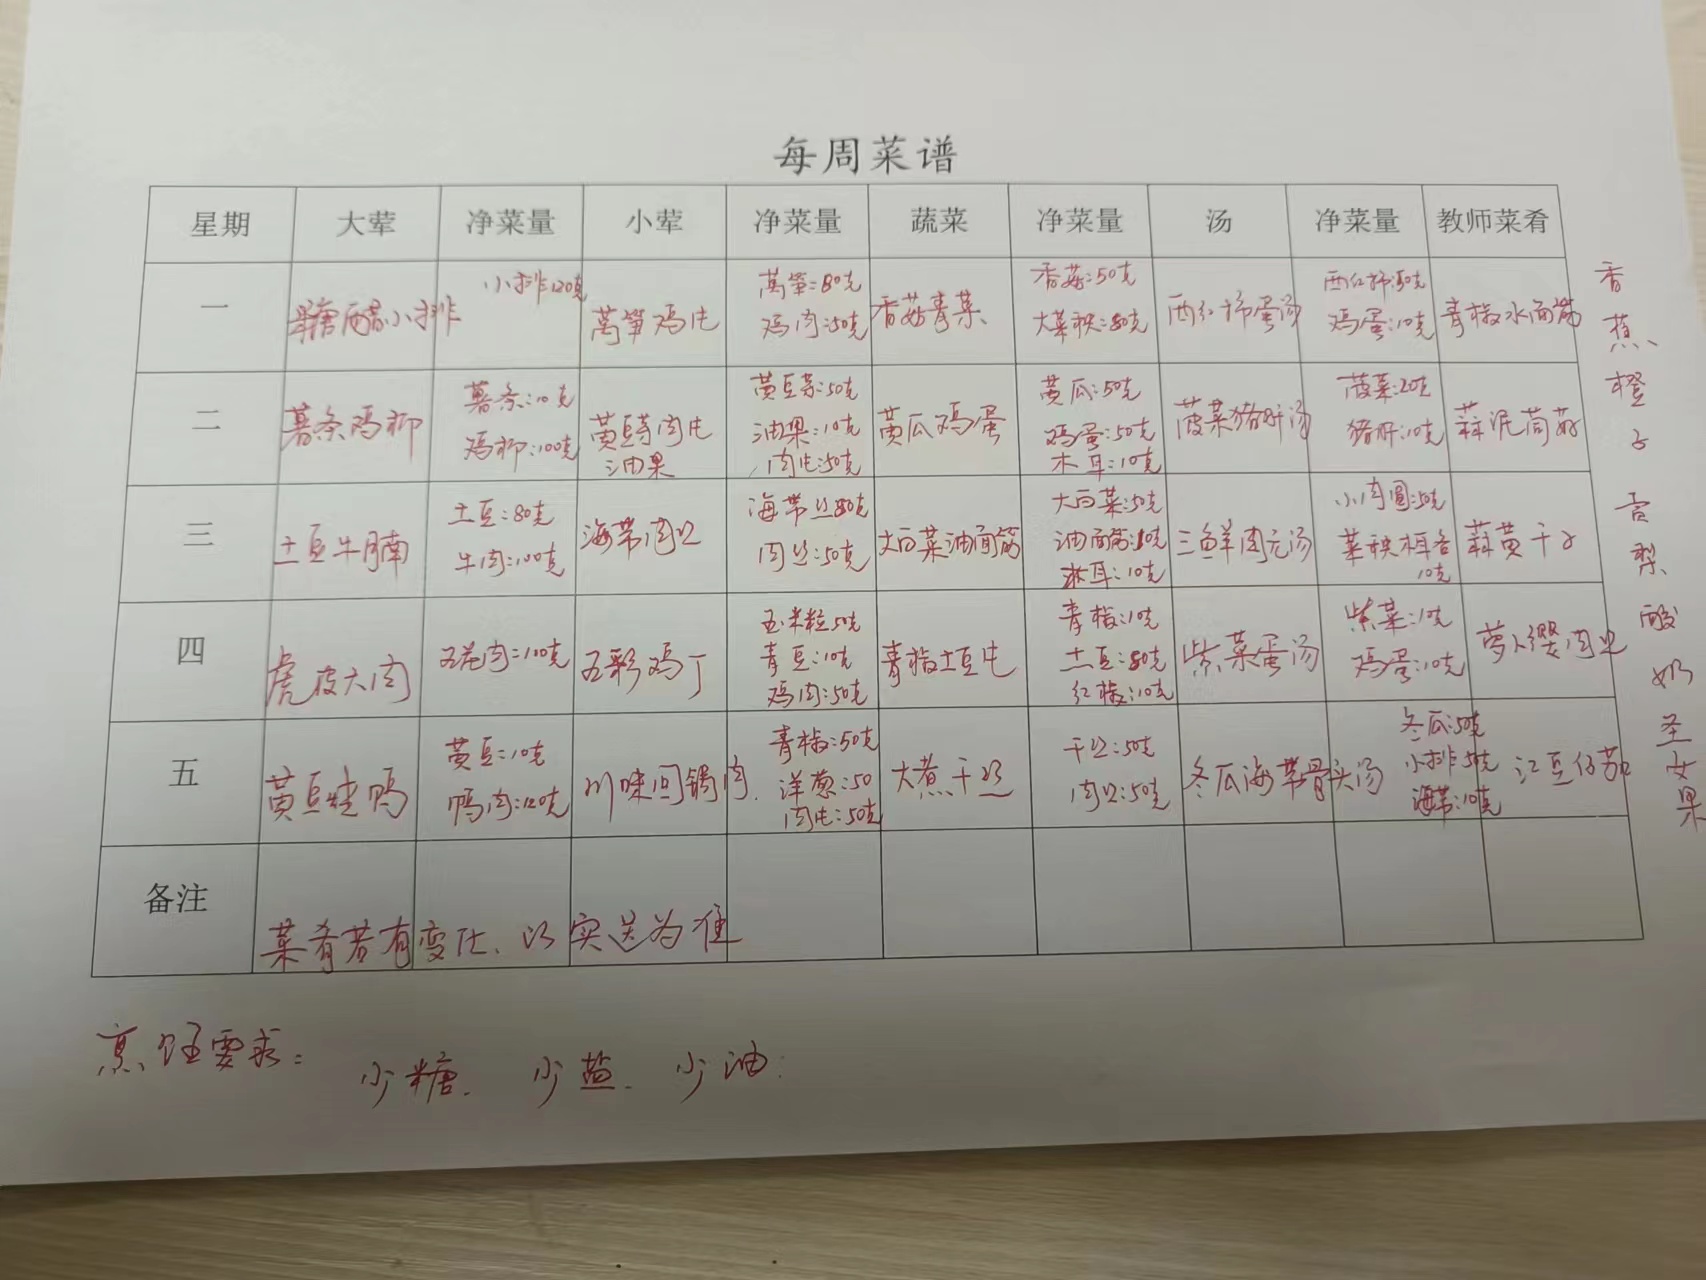 每周菜谱
星期 大荤 净菜量 小荤 净菜量 蔬菜 净菜量 汤 净菜量 教师菜肴
一 糖醋小排 小排120克 莴笋鸡片 莴笋:80克 鸡肉:50克 香菇青菜 香菇:50克 大菜秧:80克 西红柿蛋汤 西红柿:50克 鸡蛋:10克 青椒水面筋
二 薯条鸡柳 薯条:10克 鸡柳:100克 黄豆芽肉片油果 黄豆芽:50克 油果:10克 肉片:50克 黄瓜鸡蛋 黄瓜:50克 鸡蛋:50克 木耳:10克 菠菜猪肝汤 菠菜:20克 猪肝:10克 蒜泥茼蒿
三 土豆牛腩 土豆:80克 牛肉:100克 海带肉丝 海带丝80克 肉丝:50克 大白菜油面筋 大白菜:50克 油面筋:10克 木耳:10克 三鲜肉元汤 小肉圆:50克 菜秧木耳各10克 蒜黄干子
四 虎皮大肉 五花肉:100克 五彩鸡丁 玉米粒50克 青豆:10克 鸡肉:50克 青椒土豆片 青椒:10克 土豆:80克 红椒:10克 紫菜蛋汤 紫菜:10克 鸡蛋:10克 萝卜缨肉丝
五 黄豆烧鸭 黄豆:10克 鸭肉:120克 川味回锅肉 青椒:50克 洋葱:50 肉片:50克 大煮干丝 干丝:50克 肉丝:50克 冬瓜海带骨头汤 冬瓜:50克 小排:50克 海带:10克 江豆仔茄
备注 菜肴若有变化、以实送为准
烹饪要求:
少糖. 少盐. 少油:
香蕉、橙子 梨、酸奶 圣女果